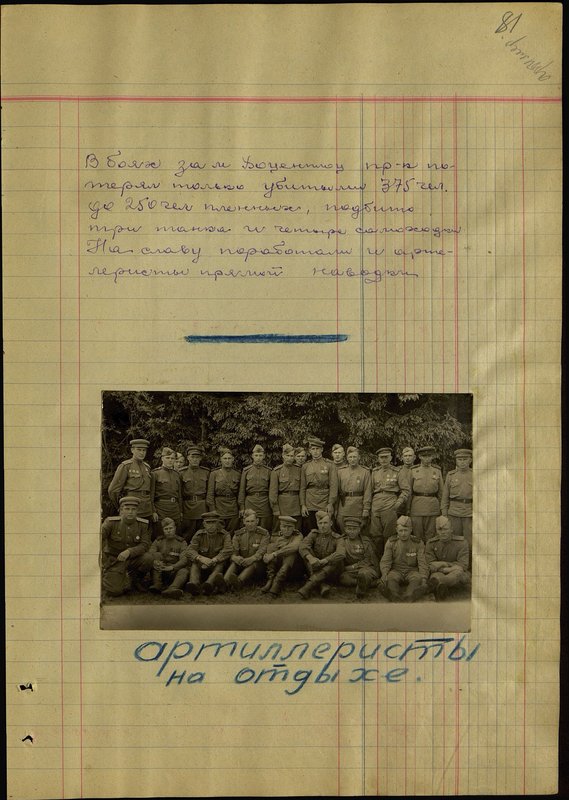 81
В боях за м пр-к по-
терял только убитыми 375 чел.
до 250 чел пленных, подбито
три танка и четыре самоходки
На славу поработали и арте-
леристы прямой наводки
артиллеристы
на отдыхе.